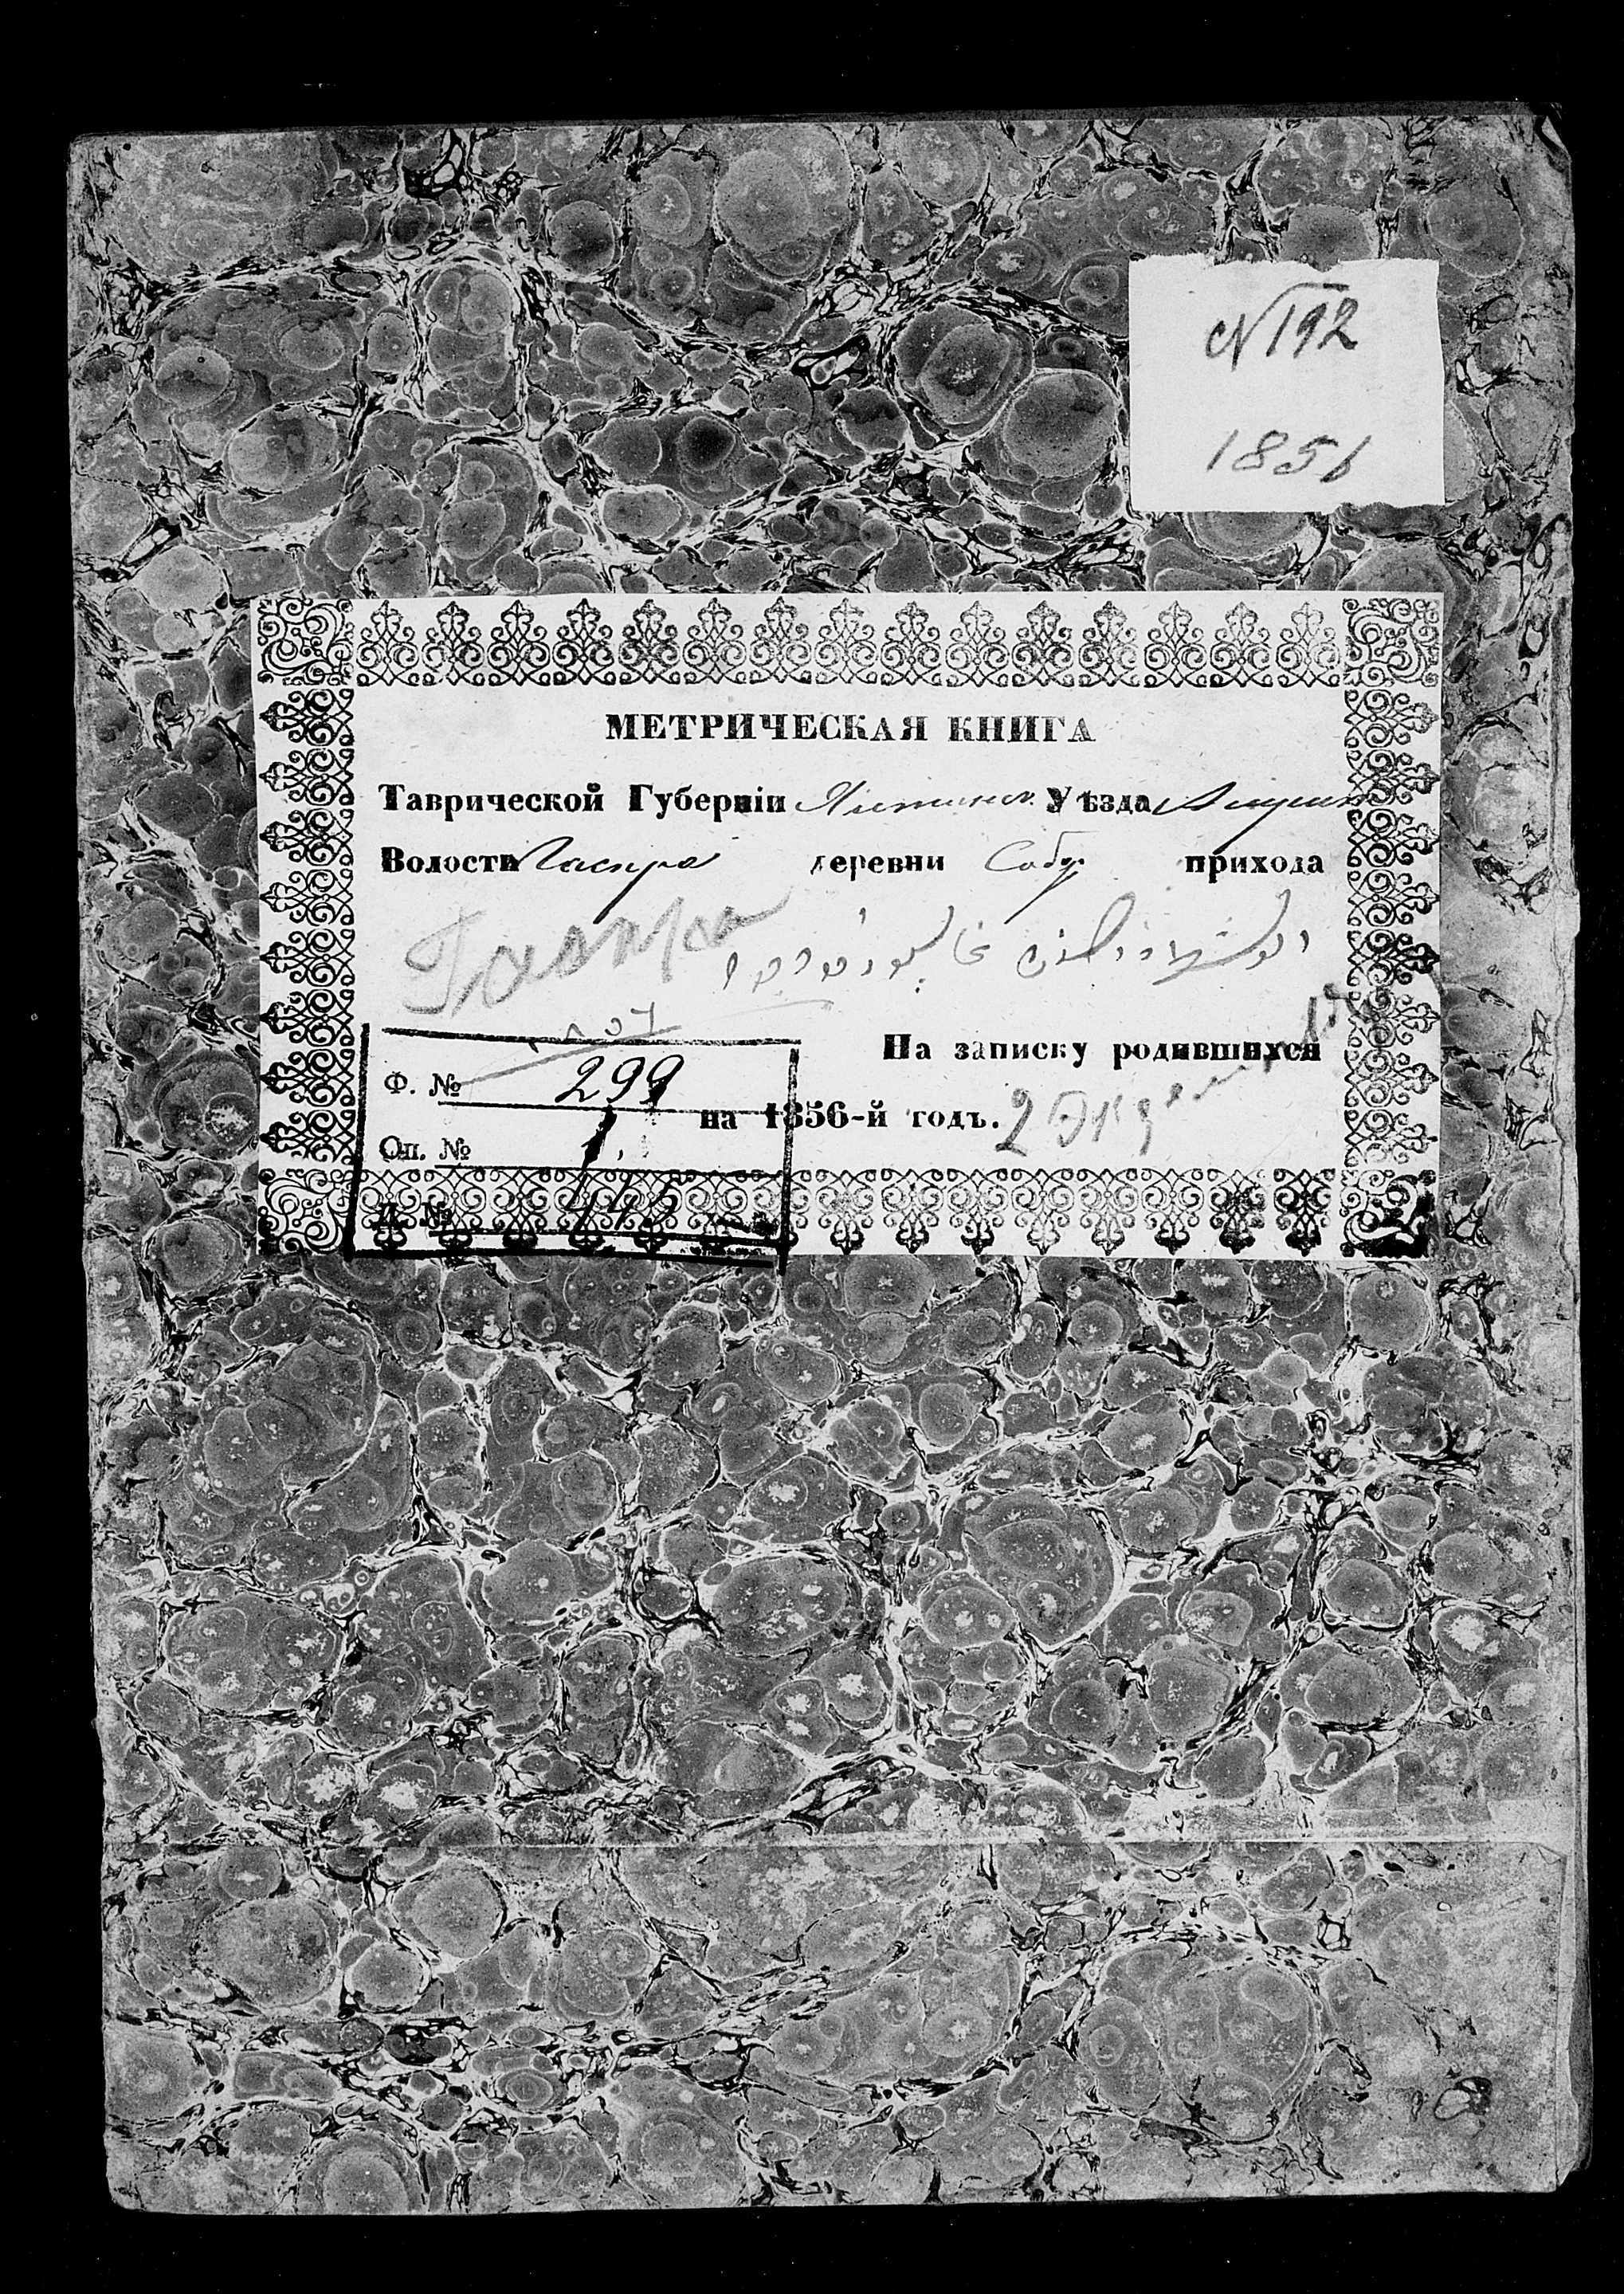 № 192
1856
МЕТРИЧЕСКАЯ КНИГА
Таврической Губерніи Ялтинск. Уѣзда
Волости Гаспра деревни Собор. прихода
Гаспра
На записку родившихся
Ф. № 299
на 1856-й годъ. 2 Экземпляр
Оп. № 1
Д. № 445